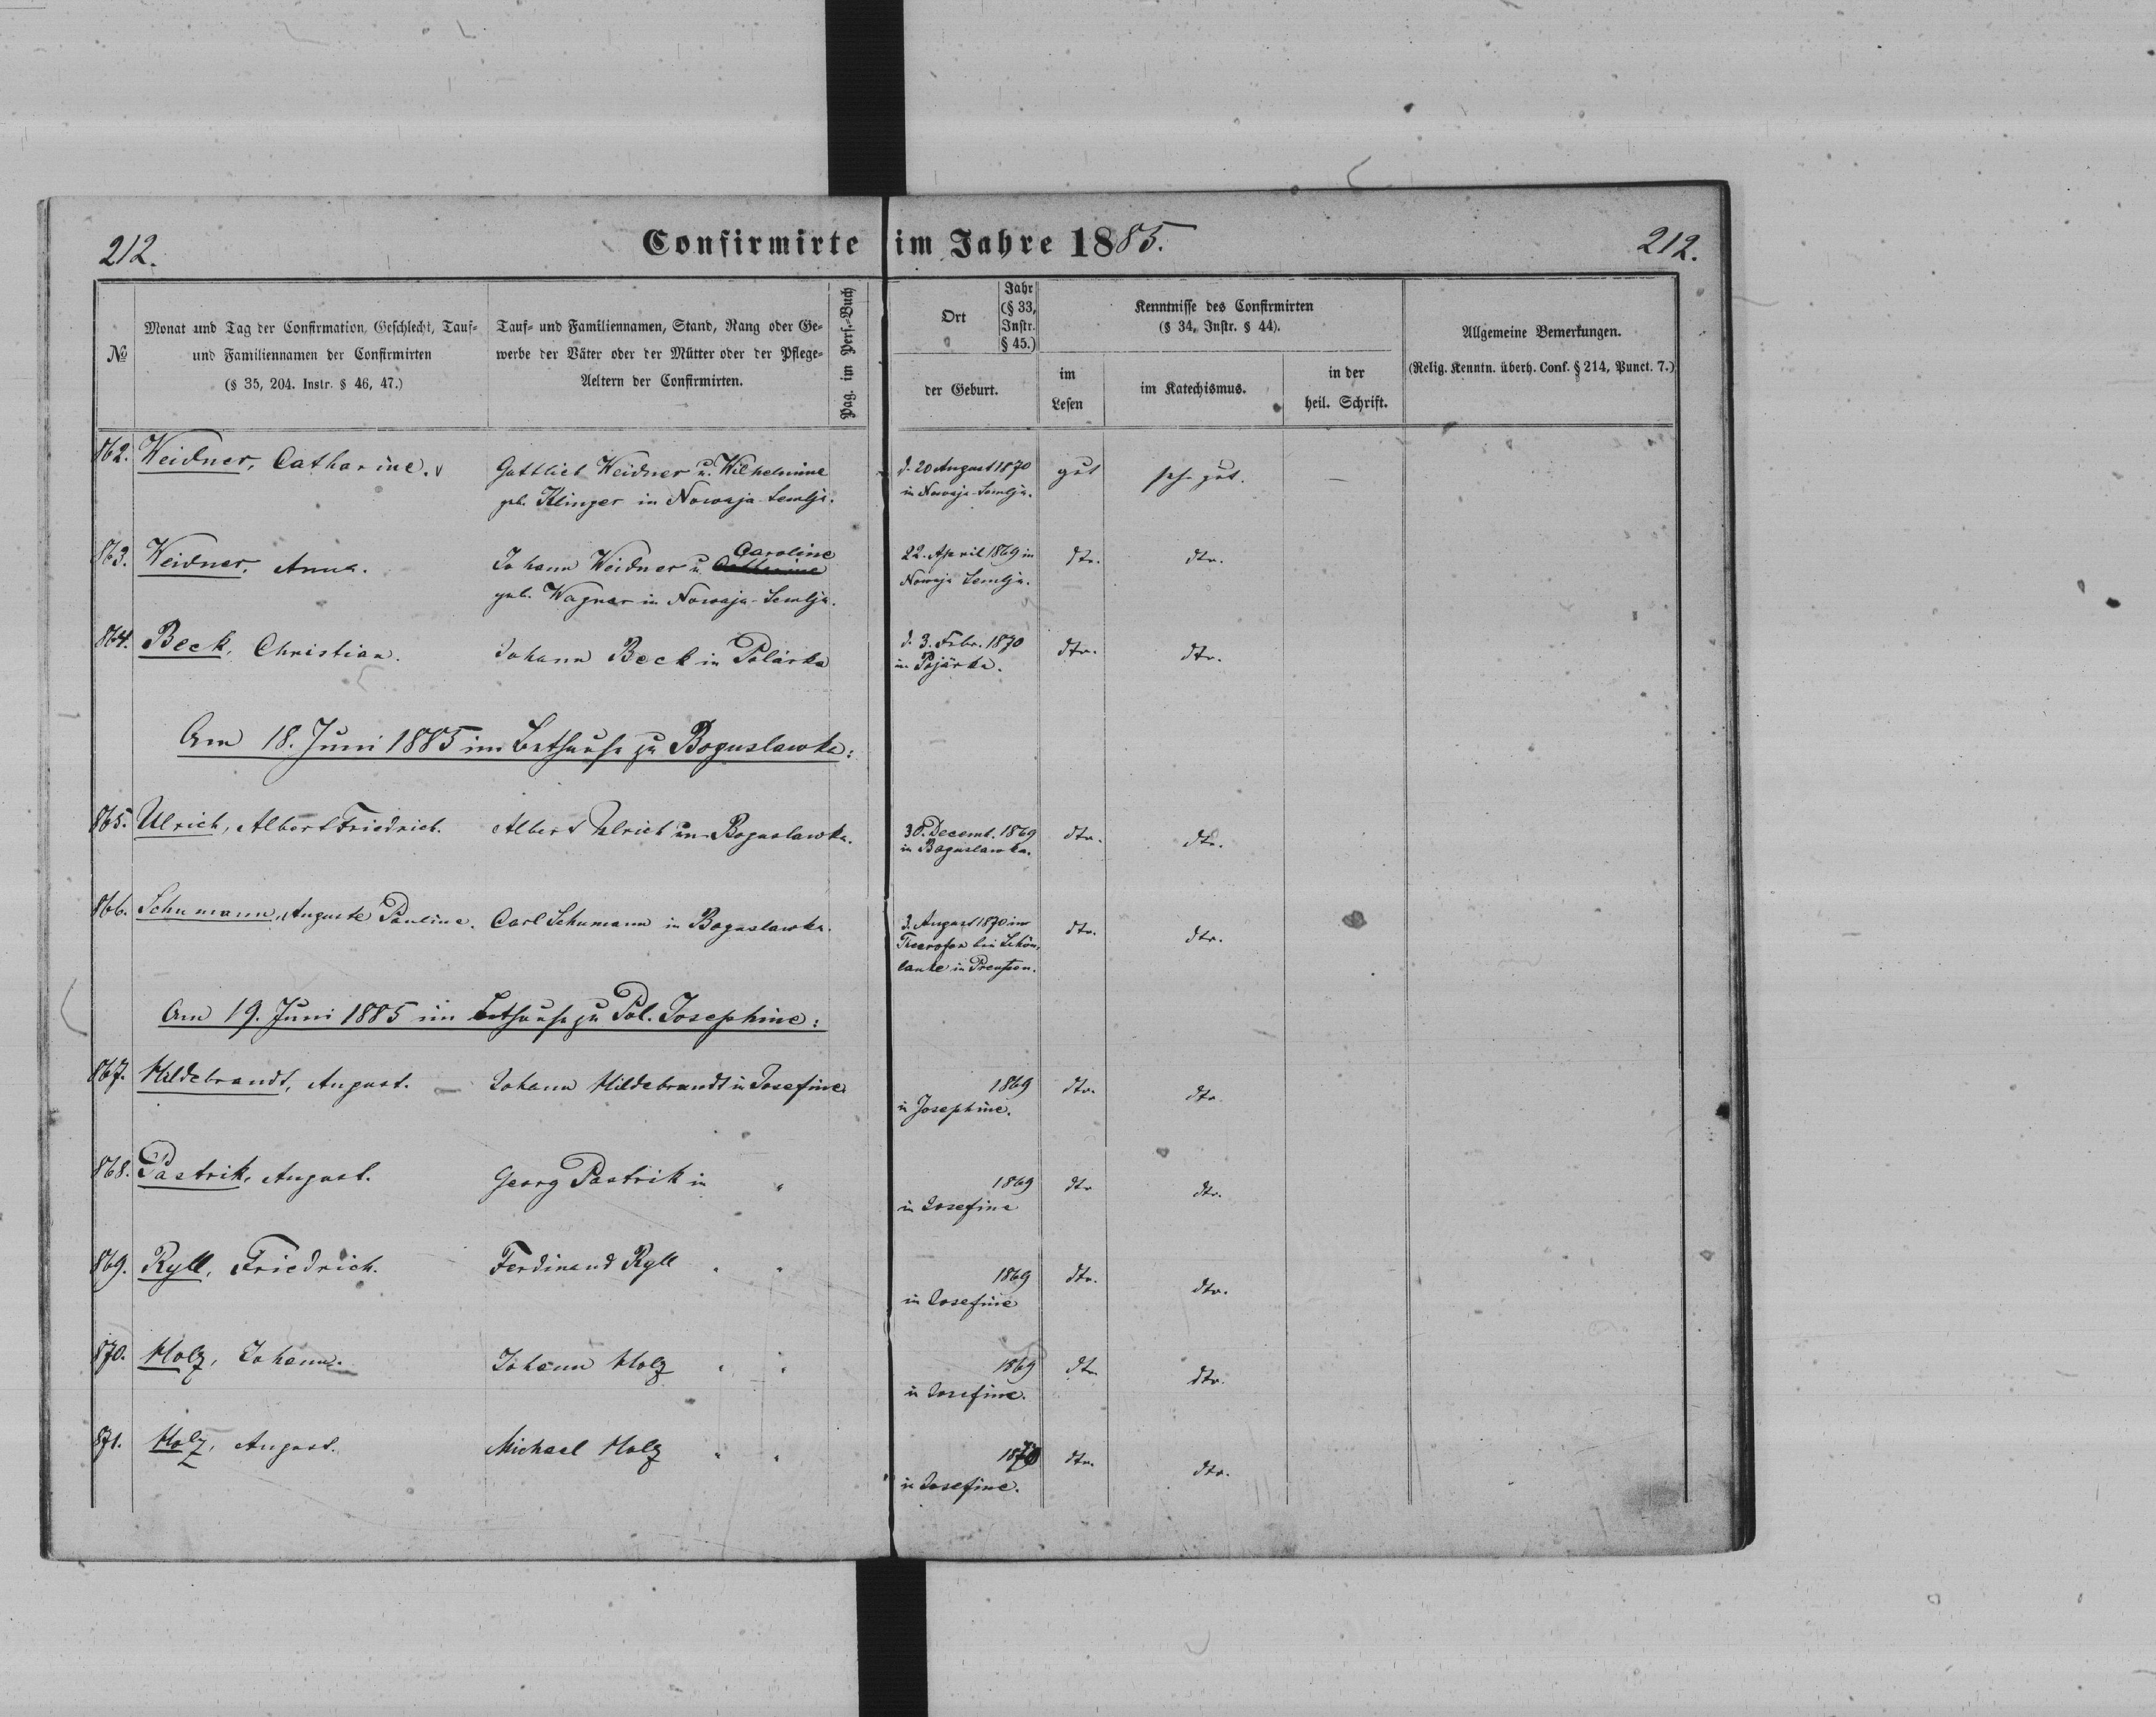 212.
Confirmirte im Jahre 1885.
212.
№
Monat und Tag der Confirmation, Geschlecht, Tauf-
und Familiennamen der Confirmirten
(§ 35, 204. Instr. § 46, 47.)
Tauf- und Familiennamen, Stand, Rang oder Ge-
werbe der Väter oder der Mütter oder der Pflege-
Aeltern der Confirmirten.
Pag. im Pers.-Buch
Ort
Jahr
(§ 33,
Instr.
§ 45.)
der Geburt.
Kenntnisse des Confirmirten
(§ 34, Instr. § 44).
im
Lesen
im Katechismus.
in der
heil. Schrift.
Allgemeine Bemerkungen.
(Relig. Kenntn. überh. Conf. § 214, Punct. 7.)
862. Weidner, Catharine.
Gottlieb Weidner u. Wilhelmine
geb. Klinger in Nowaja-Semlja.
d. 20 August 1870
in Nowaja-Semlja.
gut
sehr gut.
—
863. Weidner, Anna.
Caroline
Johann Weidner u.
geb. Wagner in Nowaja-Semlja.
22. April 1869 in
Nowaja Semlja.
dto.
dto.
864. Beck, Christian.
Johann Beck in Polärka
d. 3. Febr. 1870
in Pojärka.
dto.
dto.
Am 18. Juni 1885 im Bethause zu Boguslawka:
865. Ulrich, Albert Friedrich.
Albert Ulrich in Boguslawka.
30. Decemb. 1869
in Boguslawka.
dto.
dto.
866. Schumann, Auguste Pauline.
Carl Schumann in Boguslawka.
3. August 1870 in
bei Schön-
lanke in Preußen.
dto.
dto.
Am 19. Juni 1885 im Bethause zu Pol. Josephine:
867. Hildebrandt, August.
Johann Hildebrandt in Josefine
1869
in Josephine.
dto.
dto.
868. Pastrik, August.
Georg Pastrik in "
1869
in Josefine
dto
dto.
869. Ryll, Friedrich.
Ferdinand Ryll " "
1869
in Josefine
dto.
dto.
870. Holz, Johann.
Johann Holz " "
1869
in Josefine.
dto
dto.
871. Holz, August.
Michael Holz " "
1870
in Josefine.
dto.
dto.